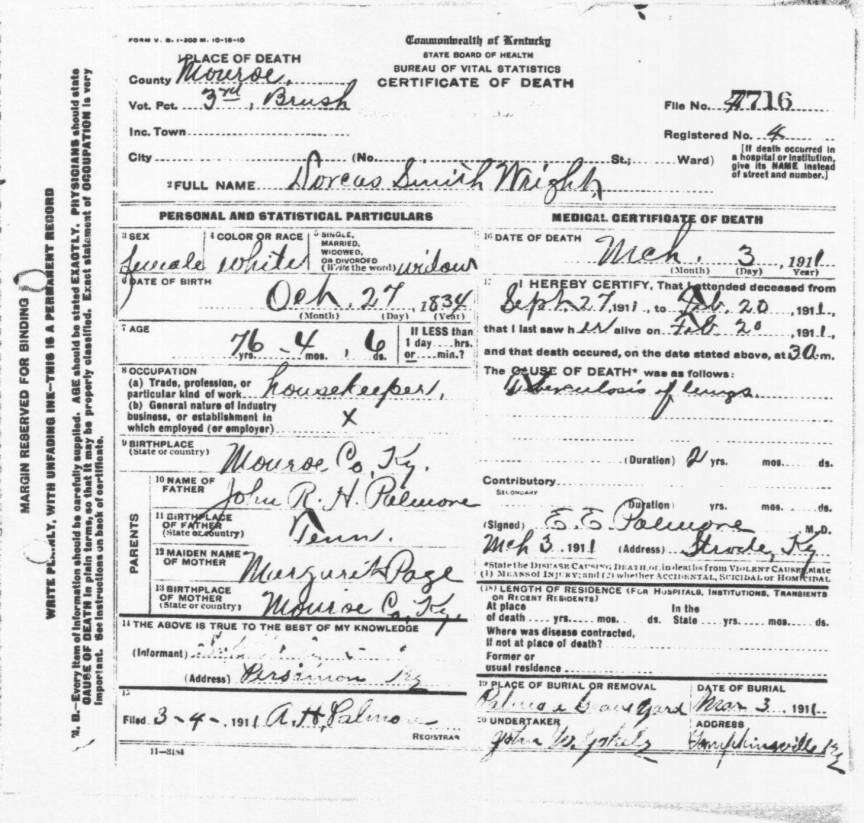 FORM V. S. 1-200 M. 10-18-10
Commonwealth of Kentucky
STATE BOARD OF HEALTH
BUREAU OF VITAL STATISTICS
CERTIFICATE OF DEATH
1 PLACE OF DEATH
County Monroe,
Vot. Pct. 3rd, Brush
Inc. Town
City (No. St.; Ward)
File No. 7716
Registered No. 4
[If death occurred in
a hospital or institution,
give its NAME instead
of street and number.]
2 FULL NAME Dorcas Smith Wright
PERSONAL AND STATISTICAL PARTICULARS
3 SEX female
4 COLOR OR RACE white
5 SINGLE,
MARRIED,
WIDOWED,
OR DIVORCED
(Write the word) widow
6 DATE OF BIRTH
Och. 27, 1834
(Month) (Day) (Year)
7 AGE
76 yrs. 4 mos. 6 ds.
If LESS than
1 day ... hrs.
or ... min.?
8 OCCUPATION
(a) Trade, profession, or
particular kind of work housekeeper,
(b) General nature of industry
business, or establishment in
which employed (or employer) x
9 BIRTHPLACE
(State or country) Monroe Co, Ky.
PARENTS
10 NAME OF
FATHER John R. H. Palmore
11 BIRTHPLACE
OF FATHER
(State or country) Tenn.
12 MAIDEN NAME
OF MOTHER Margarit Page
13 BIRTHPLACE
OF MOTHER
(State or country) Monroe Co, Ky.
14 THE ABOVE IS TRUE TO THE BEST OF MY KNOWLEDGE
(Informant)
(Address) Persimon Ky
15
Filed 3-4-, 1911 A. H. Palmore
REGISTRAR
11-3184
MEDICAL CERTIFICATE OF DEATH
16 DATE OF DEATH
Mch. 3, 1911
(Month) (Day) (Year)
17 I HEREBY CERTIFY, That I attended deceased from
Sept. 27, 1911, to Feb. 20, 1911,
that I last saw her alive on Feb. 20, 1911,
and that death occured, on the date stated above, at 3 a.m.
The CAUSE OF DEATH* was as follows:
Tuberculosis of lungs.
(Duration) 2 yrs. mos. ds.
Contributory
SECONDARY
(Duration) yrs. mos. ds.
(Signed) E. E. Palmore M. D.
Mch 3, 1911 (Address) Strode, Ky
*State the DISEASE CAUSING DEATH, or, in deaths from VIOLENT CAUSES, state
(1) MEANS OF INJURY; and (2) whether ACCIDENTAL, SUICIDAL or HOMICIDAL
(18) LENGTH OF RESIDENCE (FOR HOSPITALS, INSTITUTIONS, TRANSIENTS
OR RECENT RESIDENTS)
At place In the
of death yrs. mos. ds. State yrs. mos. ds.
Where was disease contracted,
If not at place of death?
Former or
usual residence
19 PLACE OF BURIAL OR REMOVAL
Grave Yard
DATE OF BURIAL
Mar 3, 1911
20 UNDERTAKER
John W.
ADDRESS
Tompkinsville Ky
MARGIN RESERVED FOR BINDING
WRITE PLAINLY, WITH UNFADING INK—THIS IS A PERMANENT RECORD
N. B.—Every item of information should be carefully supplied. AGE should be stated EXACTLY. PHYSICIANS should state
CAUSE OF DEATH in plain terms, so that it may be properly classified. Exact statement of OCCUPATION is very
important. See instructions on back of certificate.